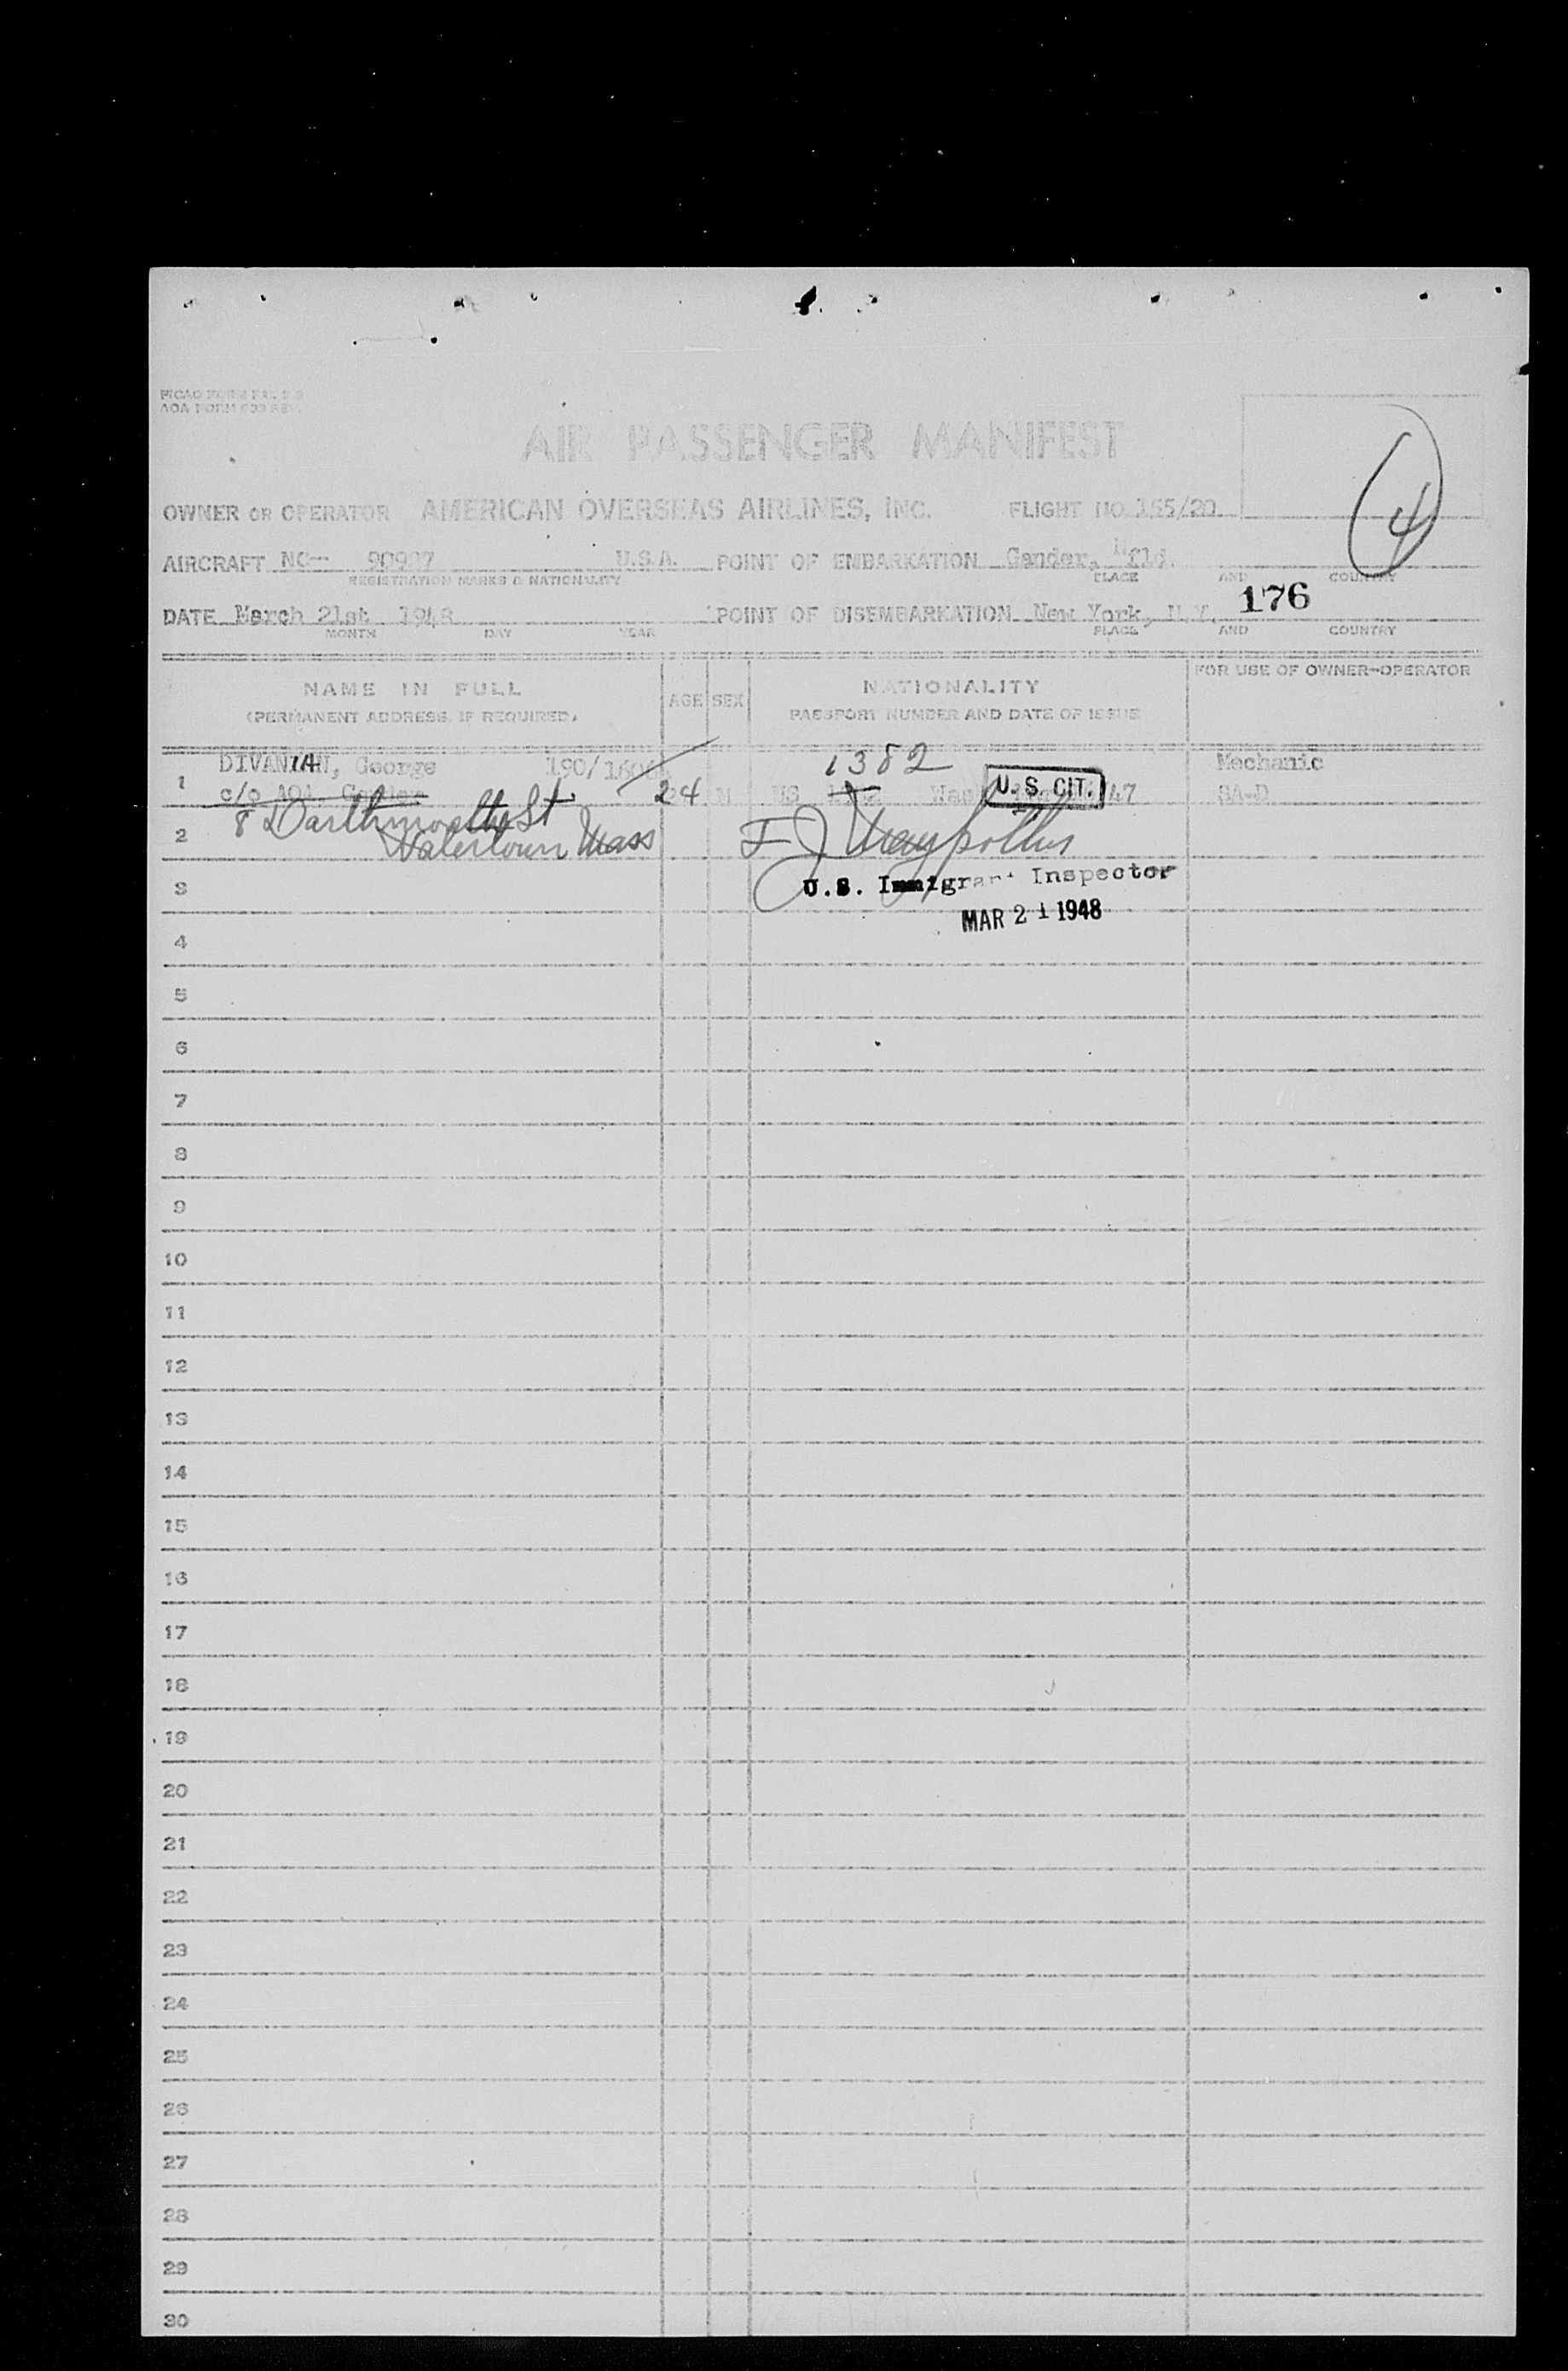 AIR PASSENGER MANIFEST
4
OWNER OR OPERATOR AMERICAN OVERSEAS AIRLINES, INC. FLIGHT NO 155/20
AIRCRAFT NC- U.S.A. POINT OF EMBARKATION Gander, Nfld.
REGISTRATION MARKS & NATIONALITY PLACE AND COUNTRY
176
DATE March 21st 1948 POINT OF DISEMBARKATION New York, N.Y.
MONTH DAY YEAR PLACE AND COUNTRY
NAME IN FULL
(PERMANENT ADDRESS, IF REQUIRED)
AGE SEX
NATIONALITY
PASSPORT NUMBER AND DATE OF ISSUE
FOR USE OF OWNER-OPERATOR
DIVANIAN, George 190/ 1382 Mechanic
1 c/o AOA, 24 M US U.S. CIT. 47 SA-D
8 Darthmouth St
2 Watertown Mass
3 U.S. Immigrant Inspector
MAR 21 1948
4
5
6
7
8
9
10
11
12
13
14
15
16
17
18
19
20
21
22
23
24
25
26
27
28
29
30